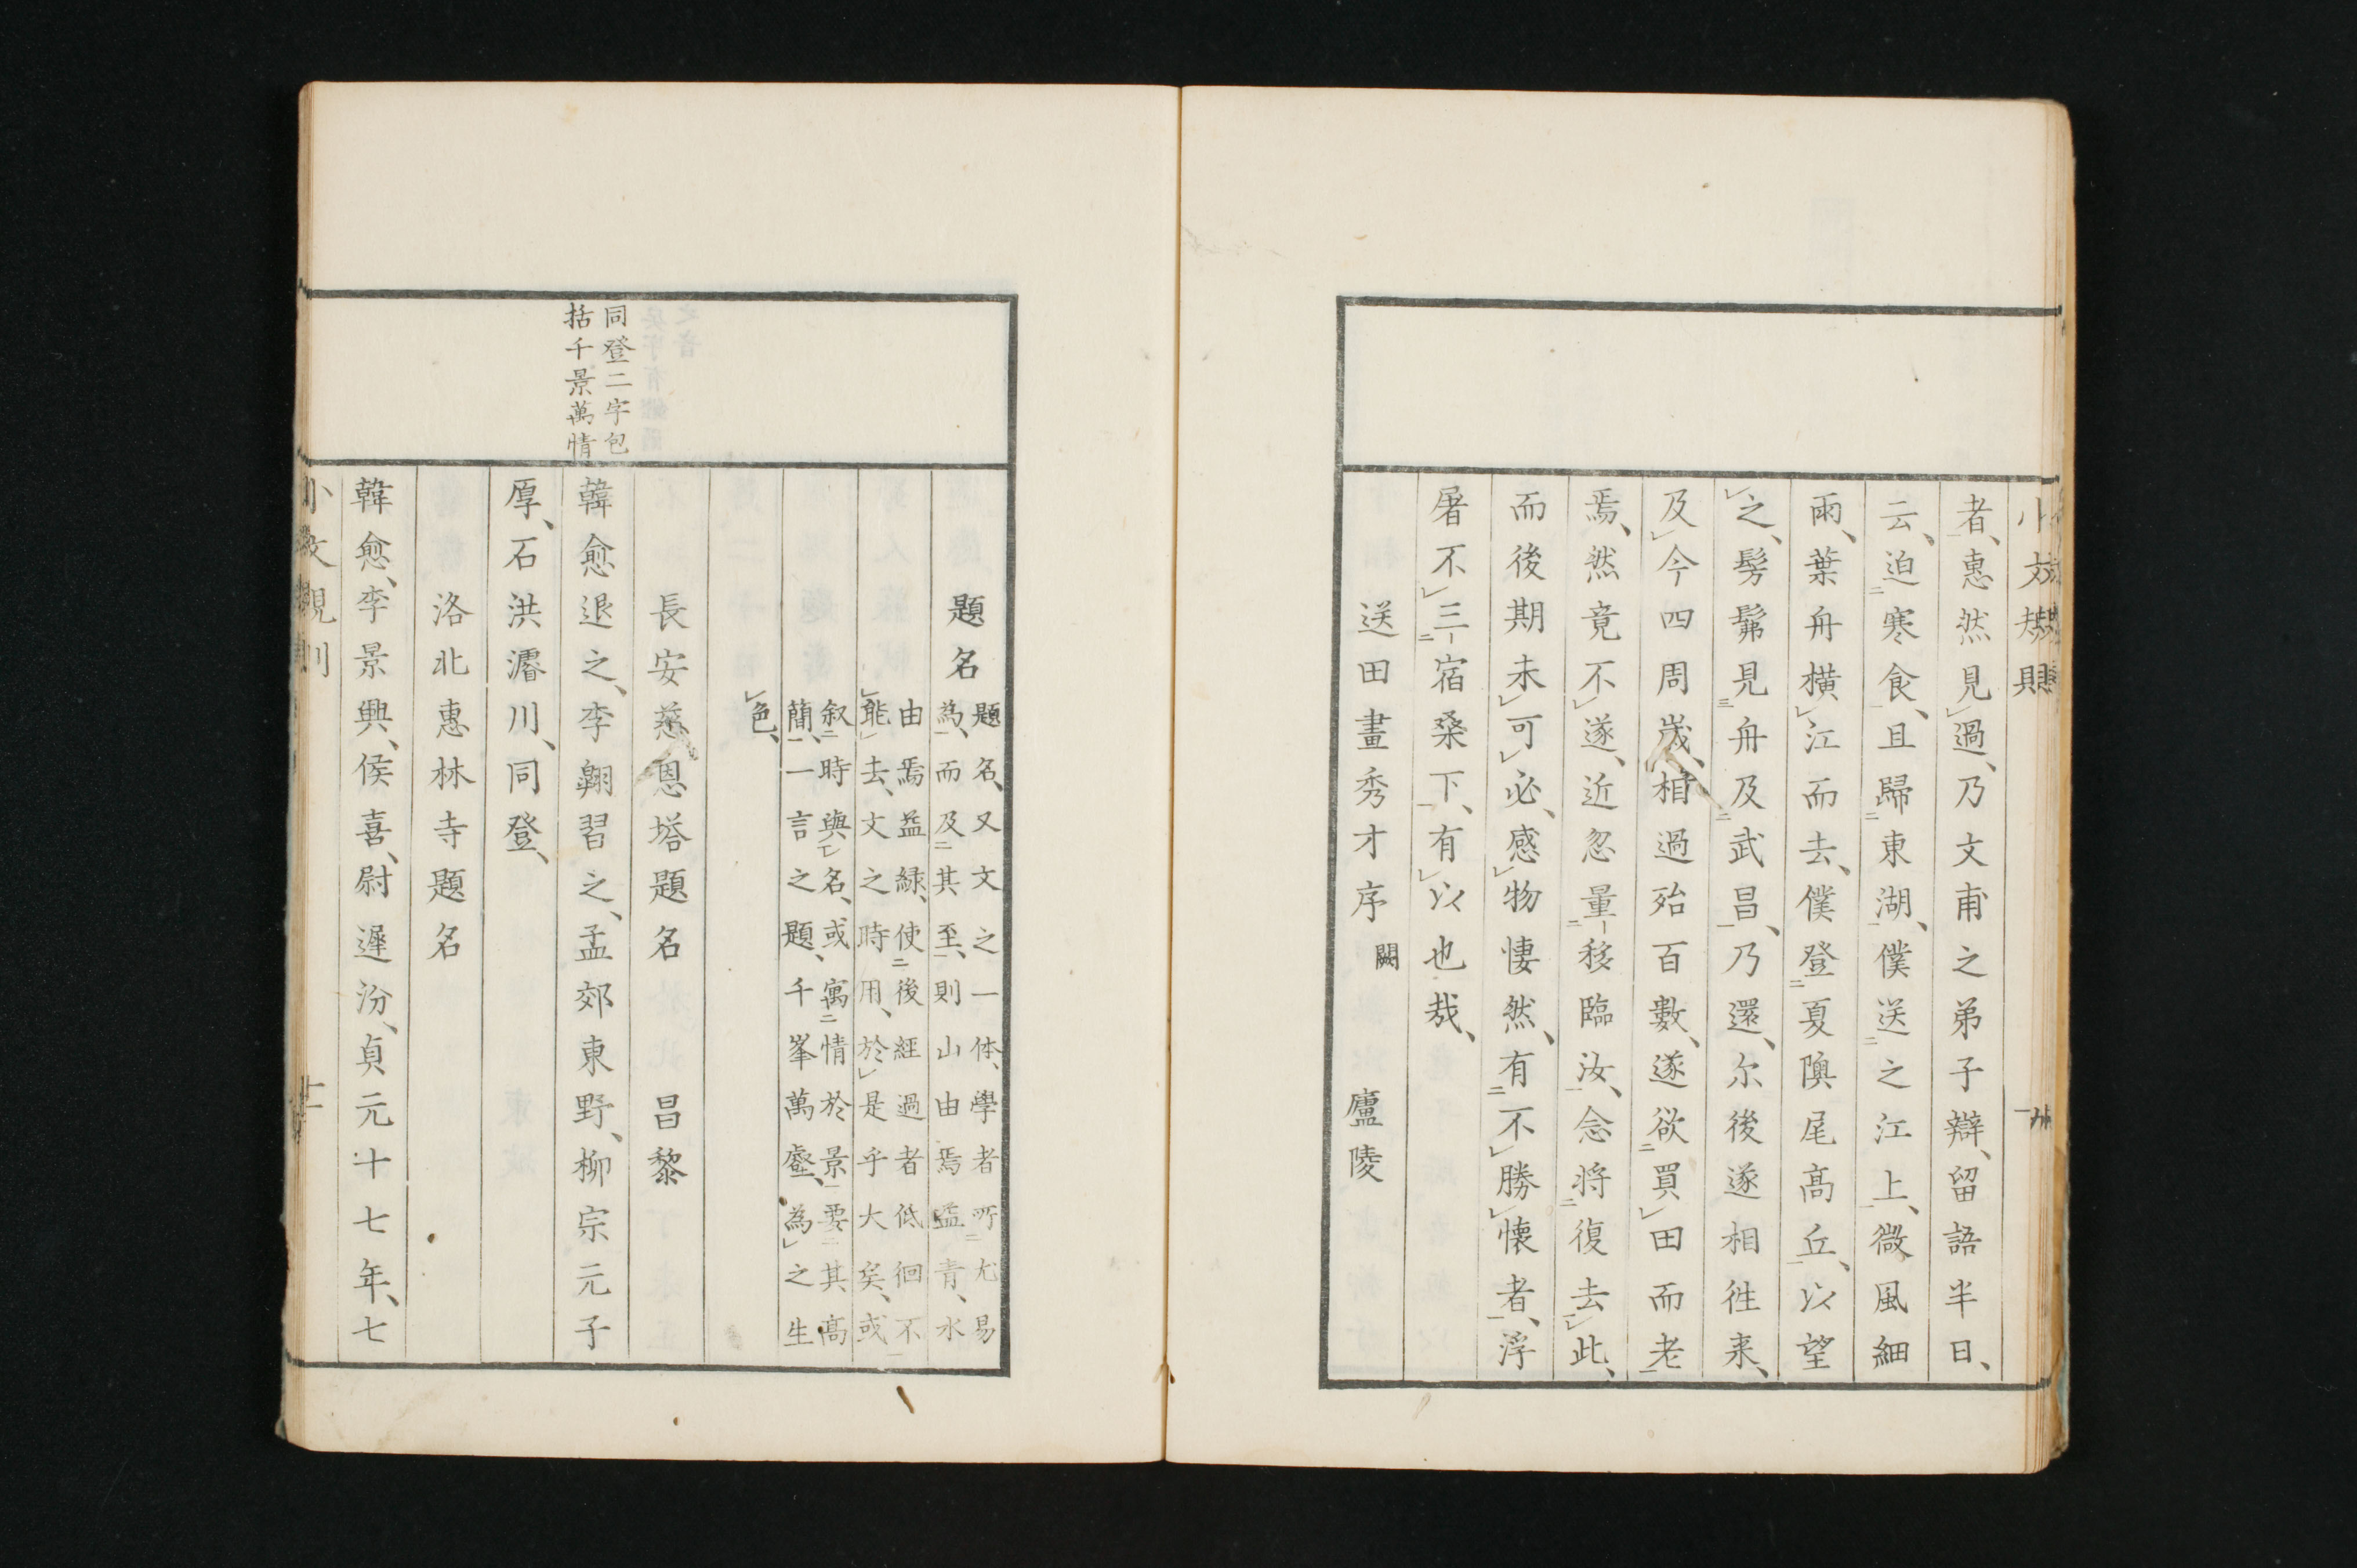 小文規則
者、惠然見過、乃文甫之弟子辯、留語半日、
云、迫寒食、且歸東湖、僕送之江上、微風細
雨、葉舟横江而去、僕登夏隩尾高丘、以望
之、髣髴見舟及武昌、乃還、尓後遂相徃来、
及今四周嵗、相過殆百數、遂欲買田而老
焉、然竟不遂、近忽量移臨汝、念将復去此、
而後期未可必、感物悽然、有不勝懐者、浮
屠不三宿桑下、有以也哉、
送田畫秀才序 闕 廬陵
題名
題名、又文之一体、學者所尤易
為、而及其至、則山由焉益青、水
由焉益緑、使後經過者低徊不
能去、文之時用、於是乎大矣、或
叙時與名、或寓情於景、要其高
簡、一言之題、千峯萬壑、為之生
色、
長安慈恩塔題名 昌黎
同登二字包
括千景萬情
韓愈退之、李翺習之、孟郊東野、柳宗元子
厚、石洪濬川、同登、
洛北惠林寺題名
韓愈、李景興、侯喜、尉遲汾、貞元十七年、七